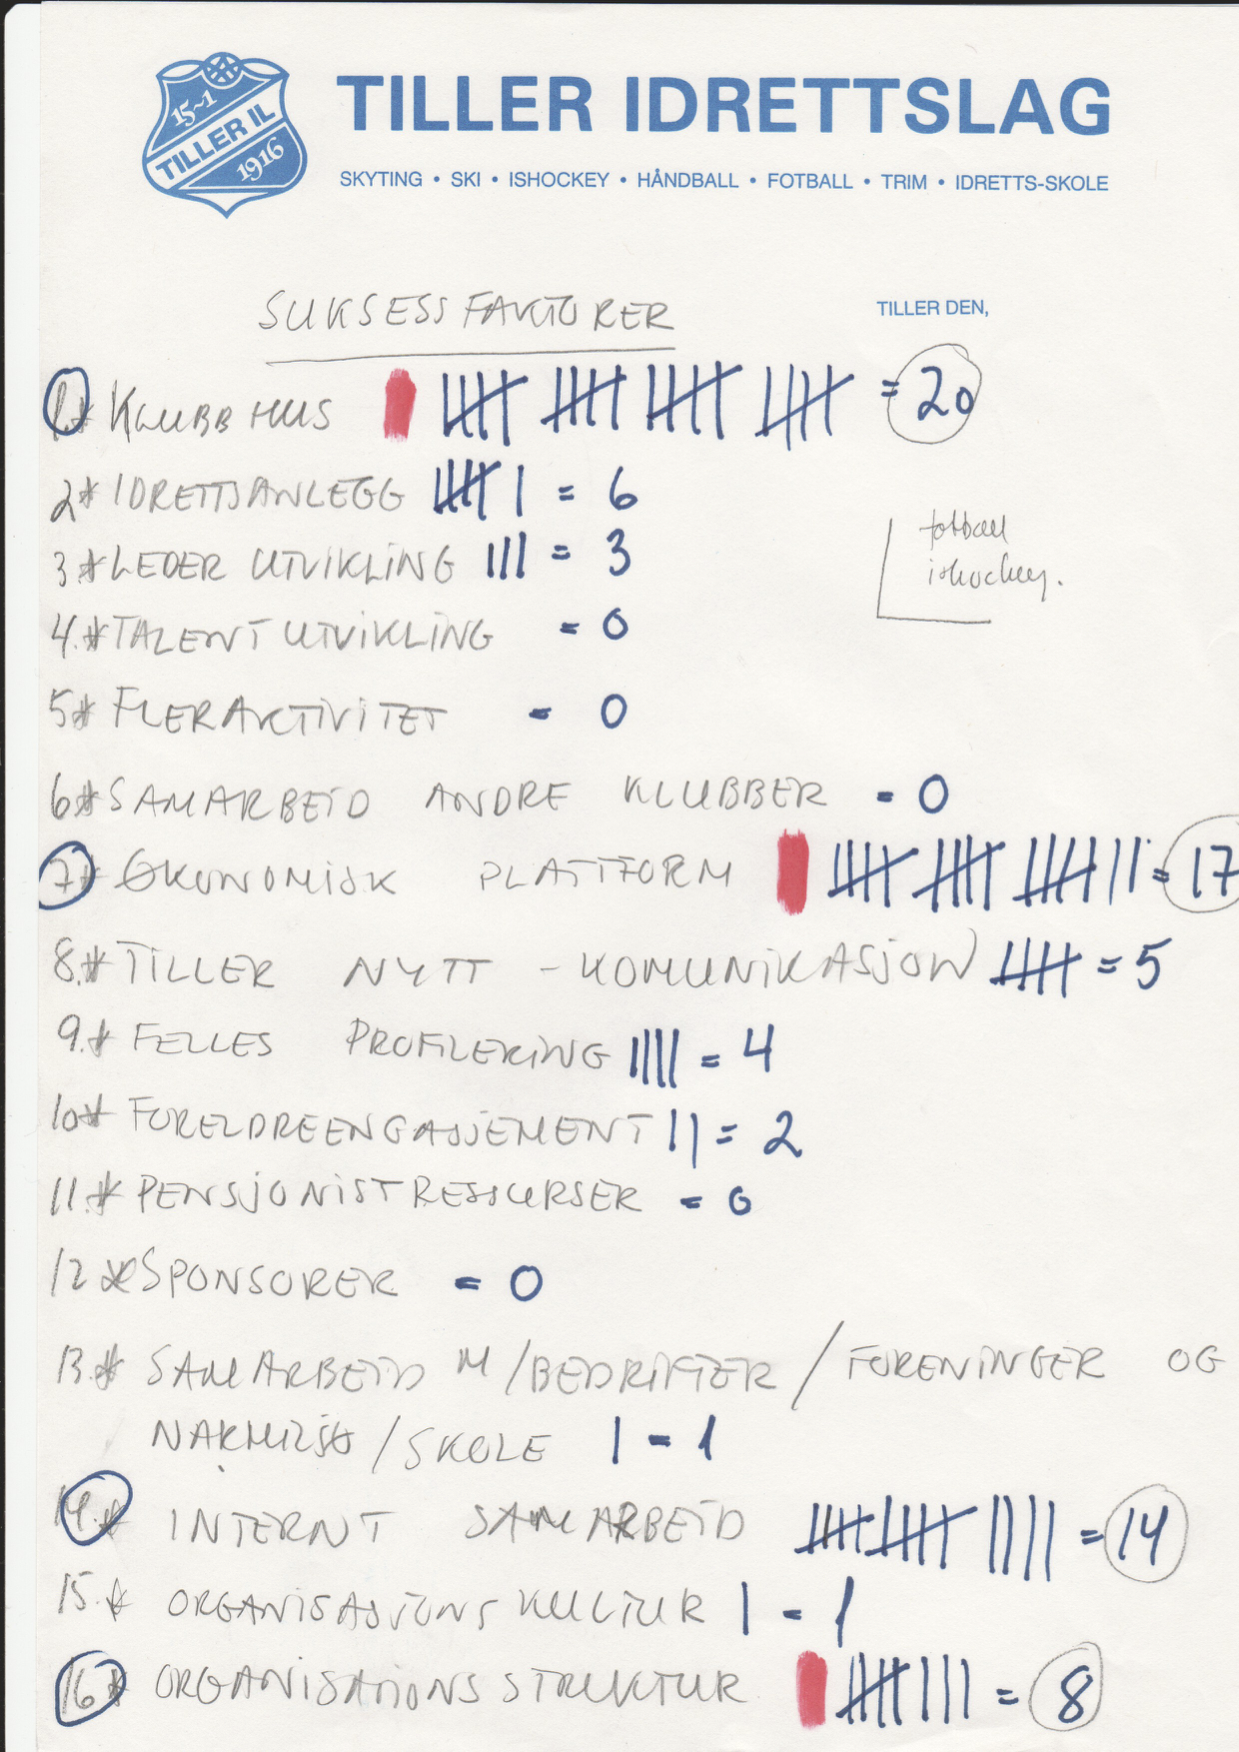 15-1
TILLER IL
1916
TILLER IDRETTSLAG
SKYTING • SKI • ISHOCKEY • HÅNDBALL • FOTBALL • TRIM • IDRETTS-SKOLE
SUKSESSFAKTORER
TILLER DEN,
1.* KLUBBHUS = 20
2* IDRETTSANLEGG = 6
fotball
ishockey.
3.* LEDER UTVIKLING = 3
4.* TALENTUTVIKLING = 0
5* FLERAKTIVITET = 0
6* SAMARBEID ANDRE KLUBBER = 0
7* ØKONOMISK PLATTFORM = 17
8.* TILLER NYTT - KOMUNIKASJON = 5
9.* FELLES PROFILERING = 4
10* FORELDREENGASJEMENT = 2
11.* PENSJONISTRESSURSER = 0
12 * SPONSORER = 0
13.* SAMARBEID M/BEDRIFTER / FORENINGER OG
NÆRMILJØ / SKOLE = 1
14.* INTERNT SAMARBEID = 14
15.* ORGANISASJONSKULTUR = 1
16* ORGANISATIONSSTRUKTUR = 8